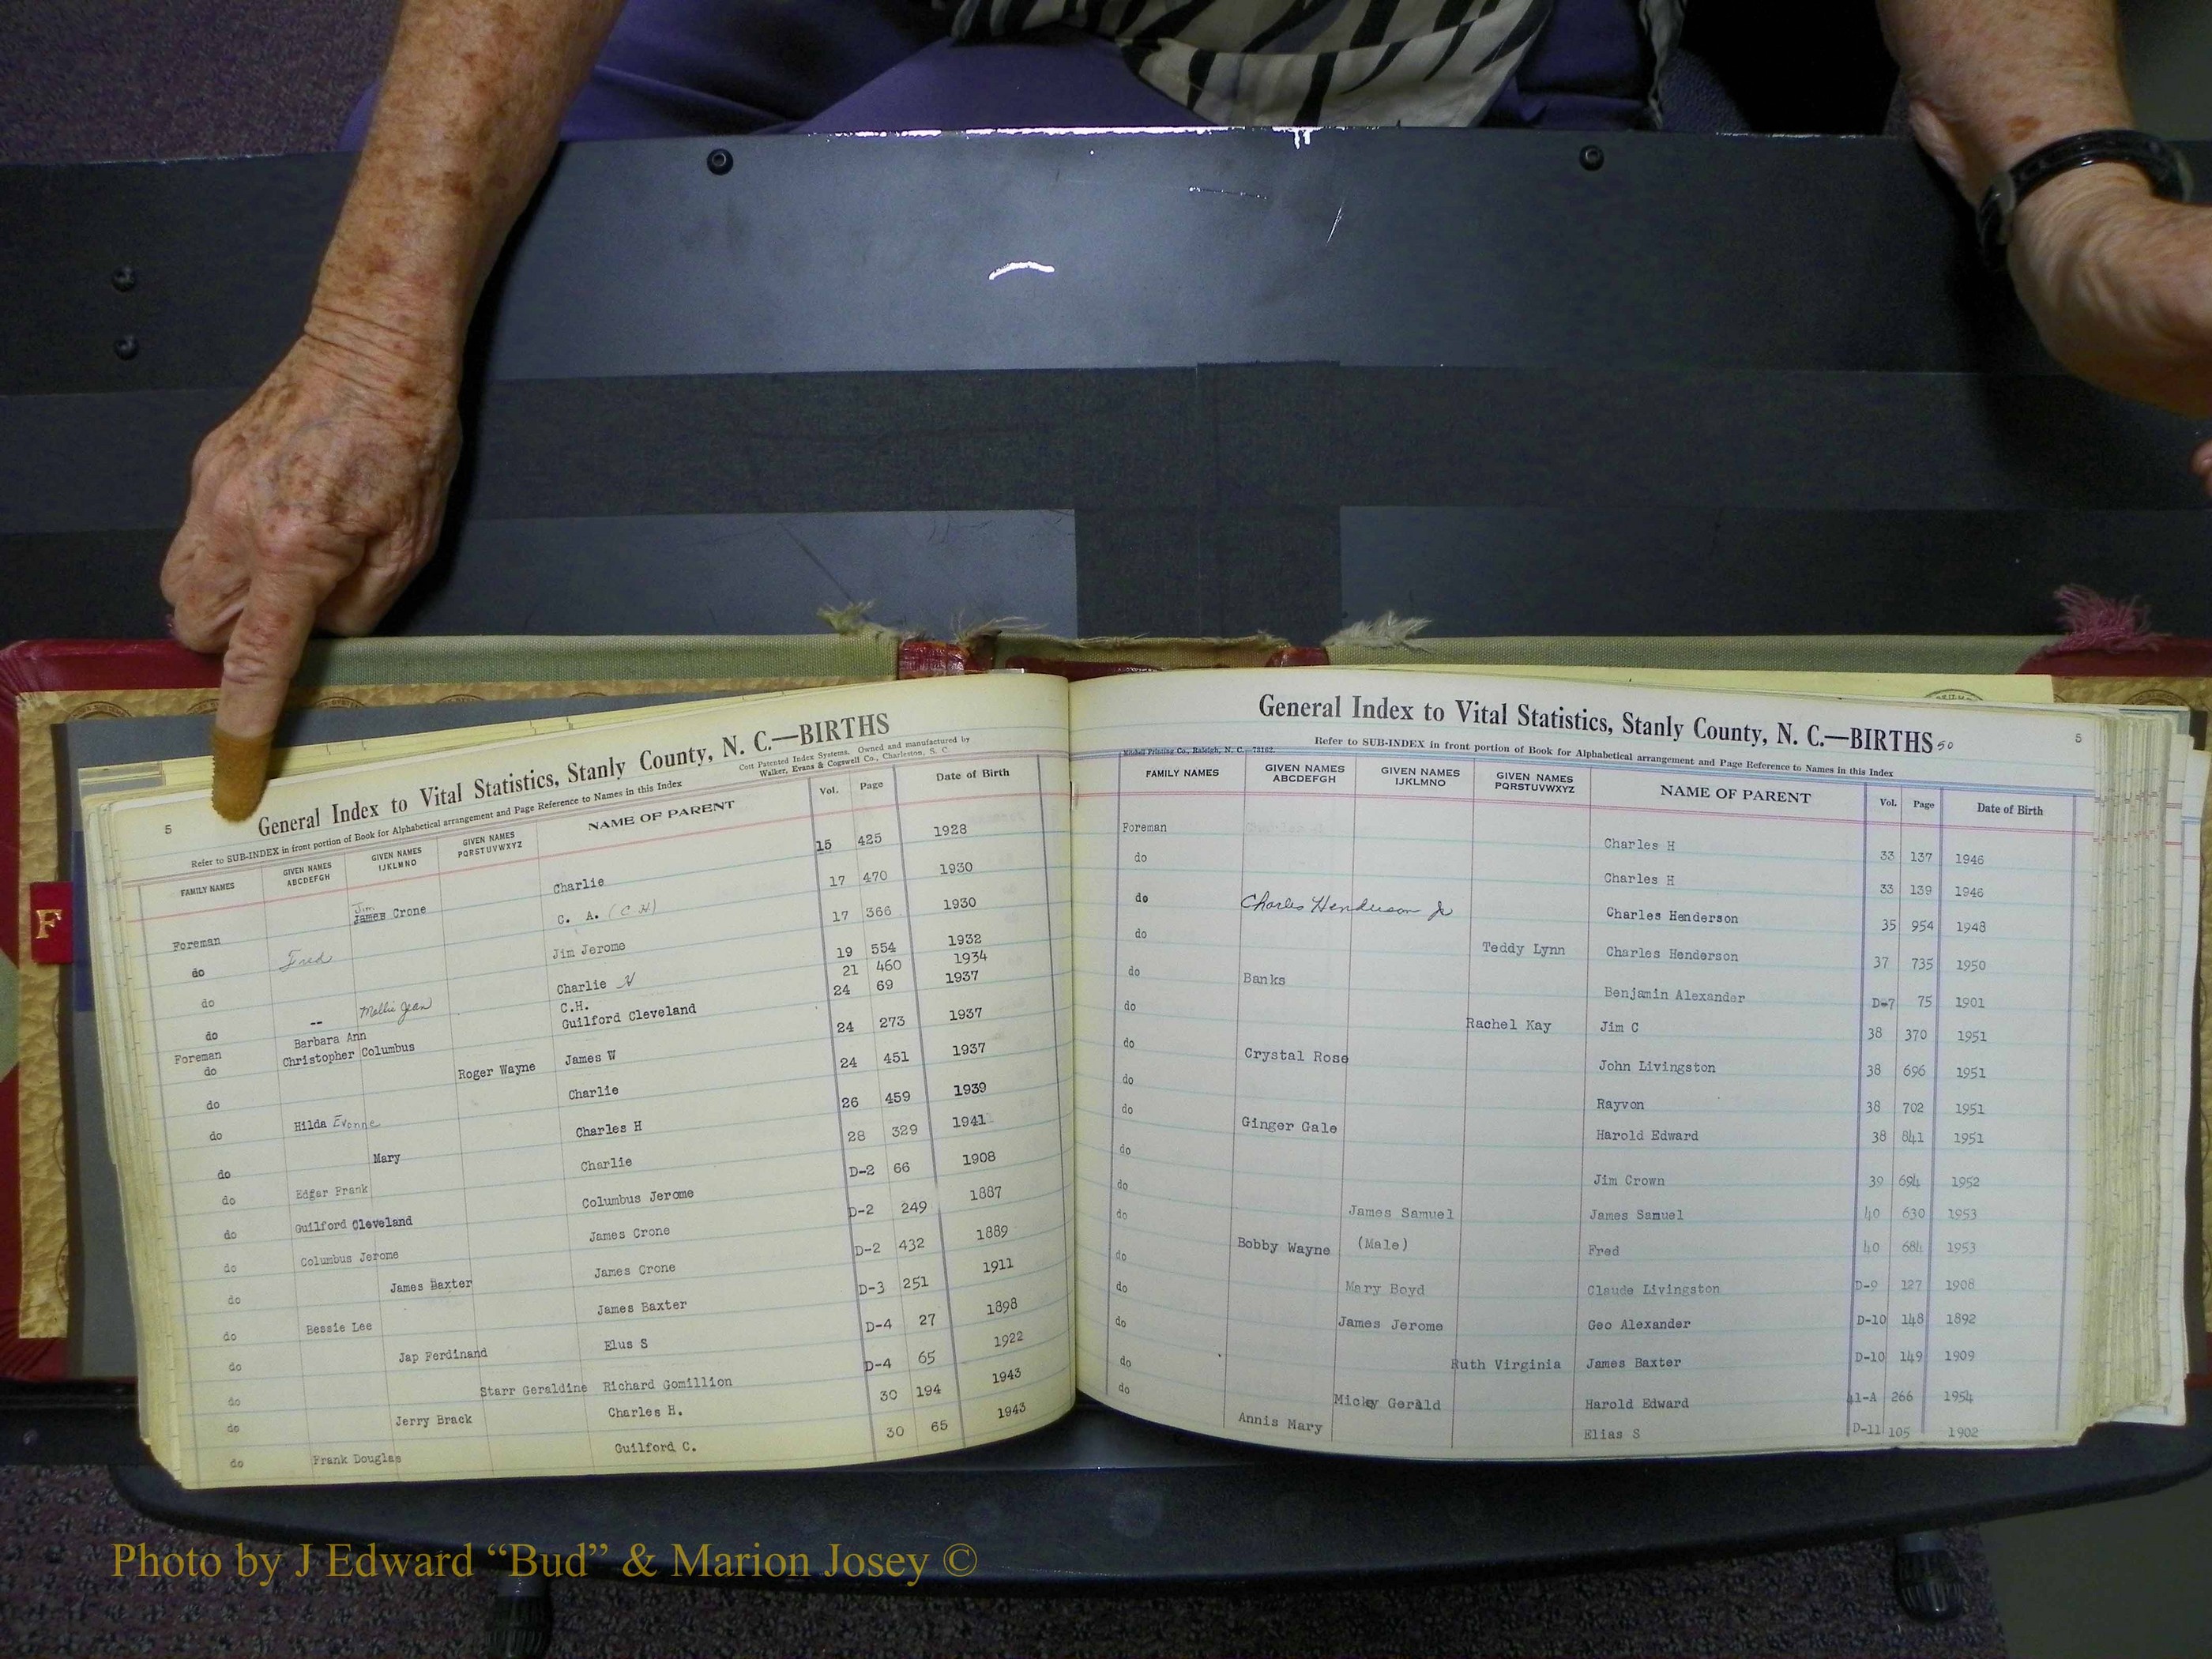 5
General Index to Vital Statistics, Stanly County, N. C.—BIRTHS
Refer to SUB-INDEX in front portion of Book for Alphabetical arrangement and Page Reference to Names in this Index
Cott Patented Index Systems. Owned and manufactured by
Walker, Evans & Cogswell Co., Charleston, S. C.
FAMILY NAMES GIVEN NAMES ABCDEFGH GIVEN NAMES IJKLMNO GIVEN NAMES PQRSTUVWXYZ NAME OF PARENT Vol. Page Date of Birth
Jim
Foreman James Crone Charlie 15 425 1928
do Fred C. A. (C H) 17 470 1930
do Jim Jerome 17 366 1930
do -- Mollie Jean Charlie H 19 554 1932
Foreman Barbara Ann C.H. 21 460 1934
do Christopher Columbus Guilford Cleveland 24 69 1937
do Roger Wayne James W 24 273 1937
do Hilda Evonne Charlie 24 451 1937
do Mary Charles H 26 459 1939
do Edgar Frank Charlie 28 329 1941
do Guilford Cleveland Columbus Jerome D-2 66 1908
do Columbus Jerome James Crone D-2 249 1887
do James Baxter James Crone D-2 432 1889
do Bessie Lee James Baxter D-3 251 1911
do Jap Ferdinand Elus S D-4 27 1898
do Starr Geraldine Richard Gomillion D-4 65 1922
do Jerry Brack Charles H. 30 194 1943
do Frank Douglas Guilford C. 30 65 1943
F
General Index to Vital Statistics, Stanly County, N. C.—BIRTHS 50
5
Refer to SUB-INDEX in front portion of Book for Alphabetical arrangement and Page Reference to Names in this Index
Mitchell Printing Co., Raleigh, N. C.—73162.
FAMILY NAMES GIVEN NAMES ABCDEFGH GIVEN NAMES IJKLMNO GIVEN NAMES PQRSTUVWXYZ NAME OF PARENT Vol. Page Date of Birth
Foreman Charles H 33 137 1946
do Charles H 33 139 1946
do Charles Henderson Jr Charles Henderson 35 954 1948
do Teddy Lynn Charles Henderson 37 735 1950
do Banks Benjamin Alexander D-7 75 1901
do Rachel Kay Jim C 38 370 1951
do Crystal Rose John Livingston 38 696 1951
do Rayvon 38 702 1951
do Ginger Gale Harold Edward 38 841 1951
do Jim Crown 39 694 1952
do James Samuel James Samuel 40 630 1953
do Bobby Wayne (Male) Fred 40 684 1953
do Mary Boyd Claude Livingston D-9 127 1908
do James Jerome Geo Alexander D-10 148 1892
do Ruth Virginia James Baxter D-10 149 1909
do Micky Gerald Harold Edward 41-A 266 1954
do Annis Mary Elias S D-11 105 1902
Photo by J Edward “Bud” & Marion Josey ©